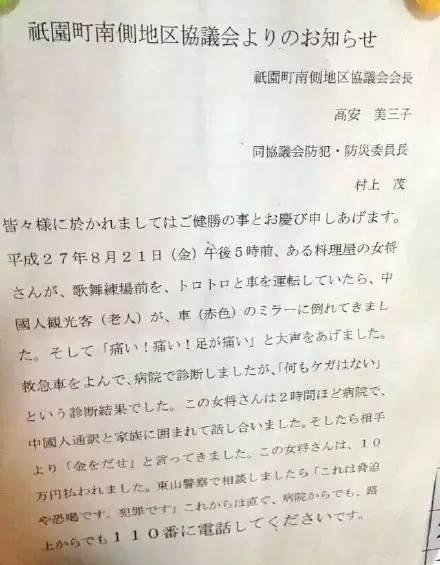 祇園町南側地区協議会よりのお知らせ
祇園町南側地区協議会会長
高安 美三子
同協議会防犯・防災委員長
村上 茂
皆々様に於かれましてはご健勝の事とお慶び申しあげます。
平成27年8月21日（金）午後5時前、ある料理屋の女将
さんが、歌舞練場前を、トロトロと車を運転していたら、中
國人観光客（老人）が、車（赤色）のミラーに倒れてきまし
た。そして「痛い！痛い！足が痛い」と大声をあげました。
救急車をよんで、病院で診断しましたが、「何もケガはない」
という診断結果でした。この女将さんは2時間ほど病院で、
中國人通訳と家族に囲まれて話し合いました。そしたら相手
より「金をだせ」と言ってきました。この女将さんは、10
万円払われました。東山警察で相談しましたら「これは脅迫
や恐喝です。犯罪です」これからは直ぐ、病院からでも、路
上からでも110番に電話してくださいです。